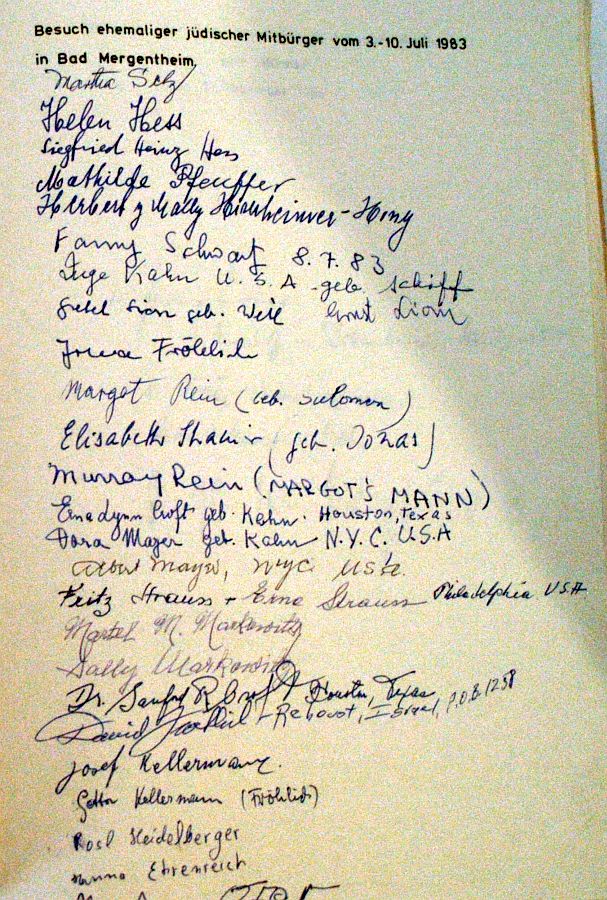 Besuch ehemaliger jüdischer Mitbürger vom 3.-10. Juli 1983
in Bad Mergentheim
Martha Selz
Helen Hess
Siegfried Heinz Hess
Mathilde Pfeuffer
Herbert y Mally
Fanny Schwarz 8.7.83
Inge Kahn U.S.A geb. Schiff
geb. Weil Ernst Lion
Fröhlich
Margot Rein (geb. Salomon)
Elisabeth Shamir (geb. Jonas)
Murray Rein (MARGOT'S MANN)
geb. Kahn. Houston, Texas
Dora Mayer geb. Kahn N.Y.C. U.S.A
Albert Mayer, NYC USA.
Fritz Strauss + Erna Strauss Philadelphia USA
Martel M. Markowitz
Sally Markowitz
Dr. Sanford R. Houston, Texas
David - Rehovot, Israel, P.O.B. 1258
Josef Kellermann.
Kellermann (Fröhlich)
Rosl Heidelberger
Hanna Ehrenreich